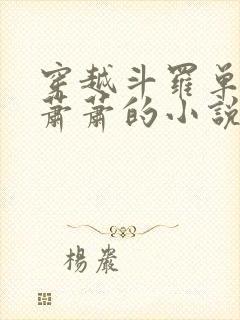 穿越斗羅單
蕭蕭的小説
楊嚴